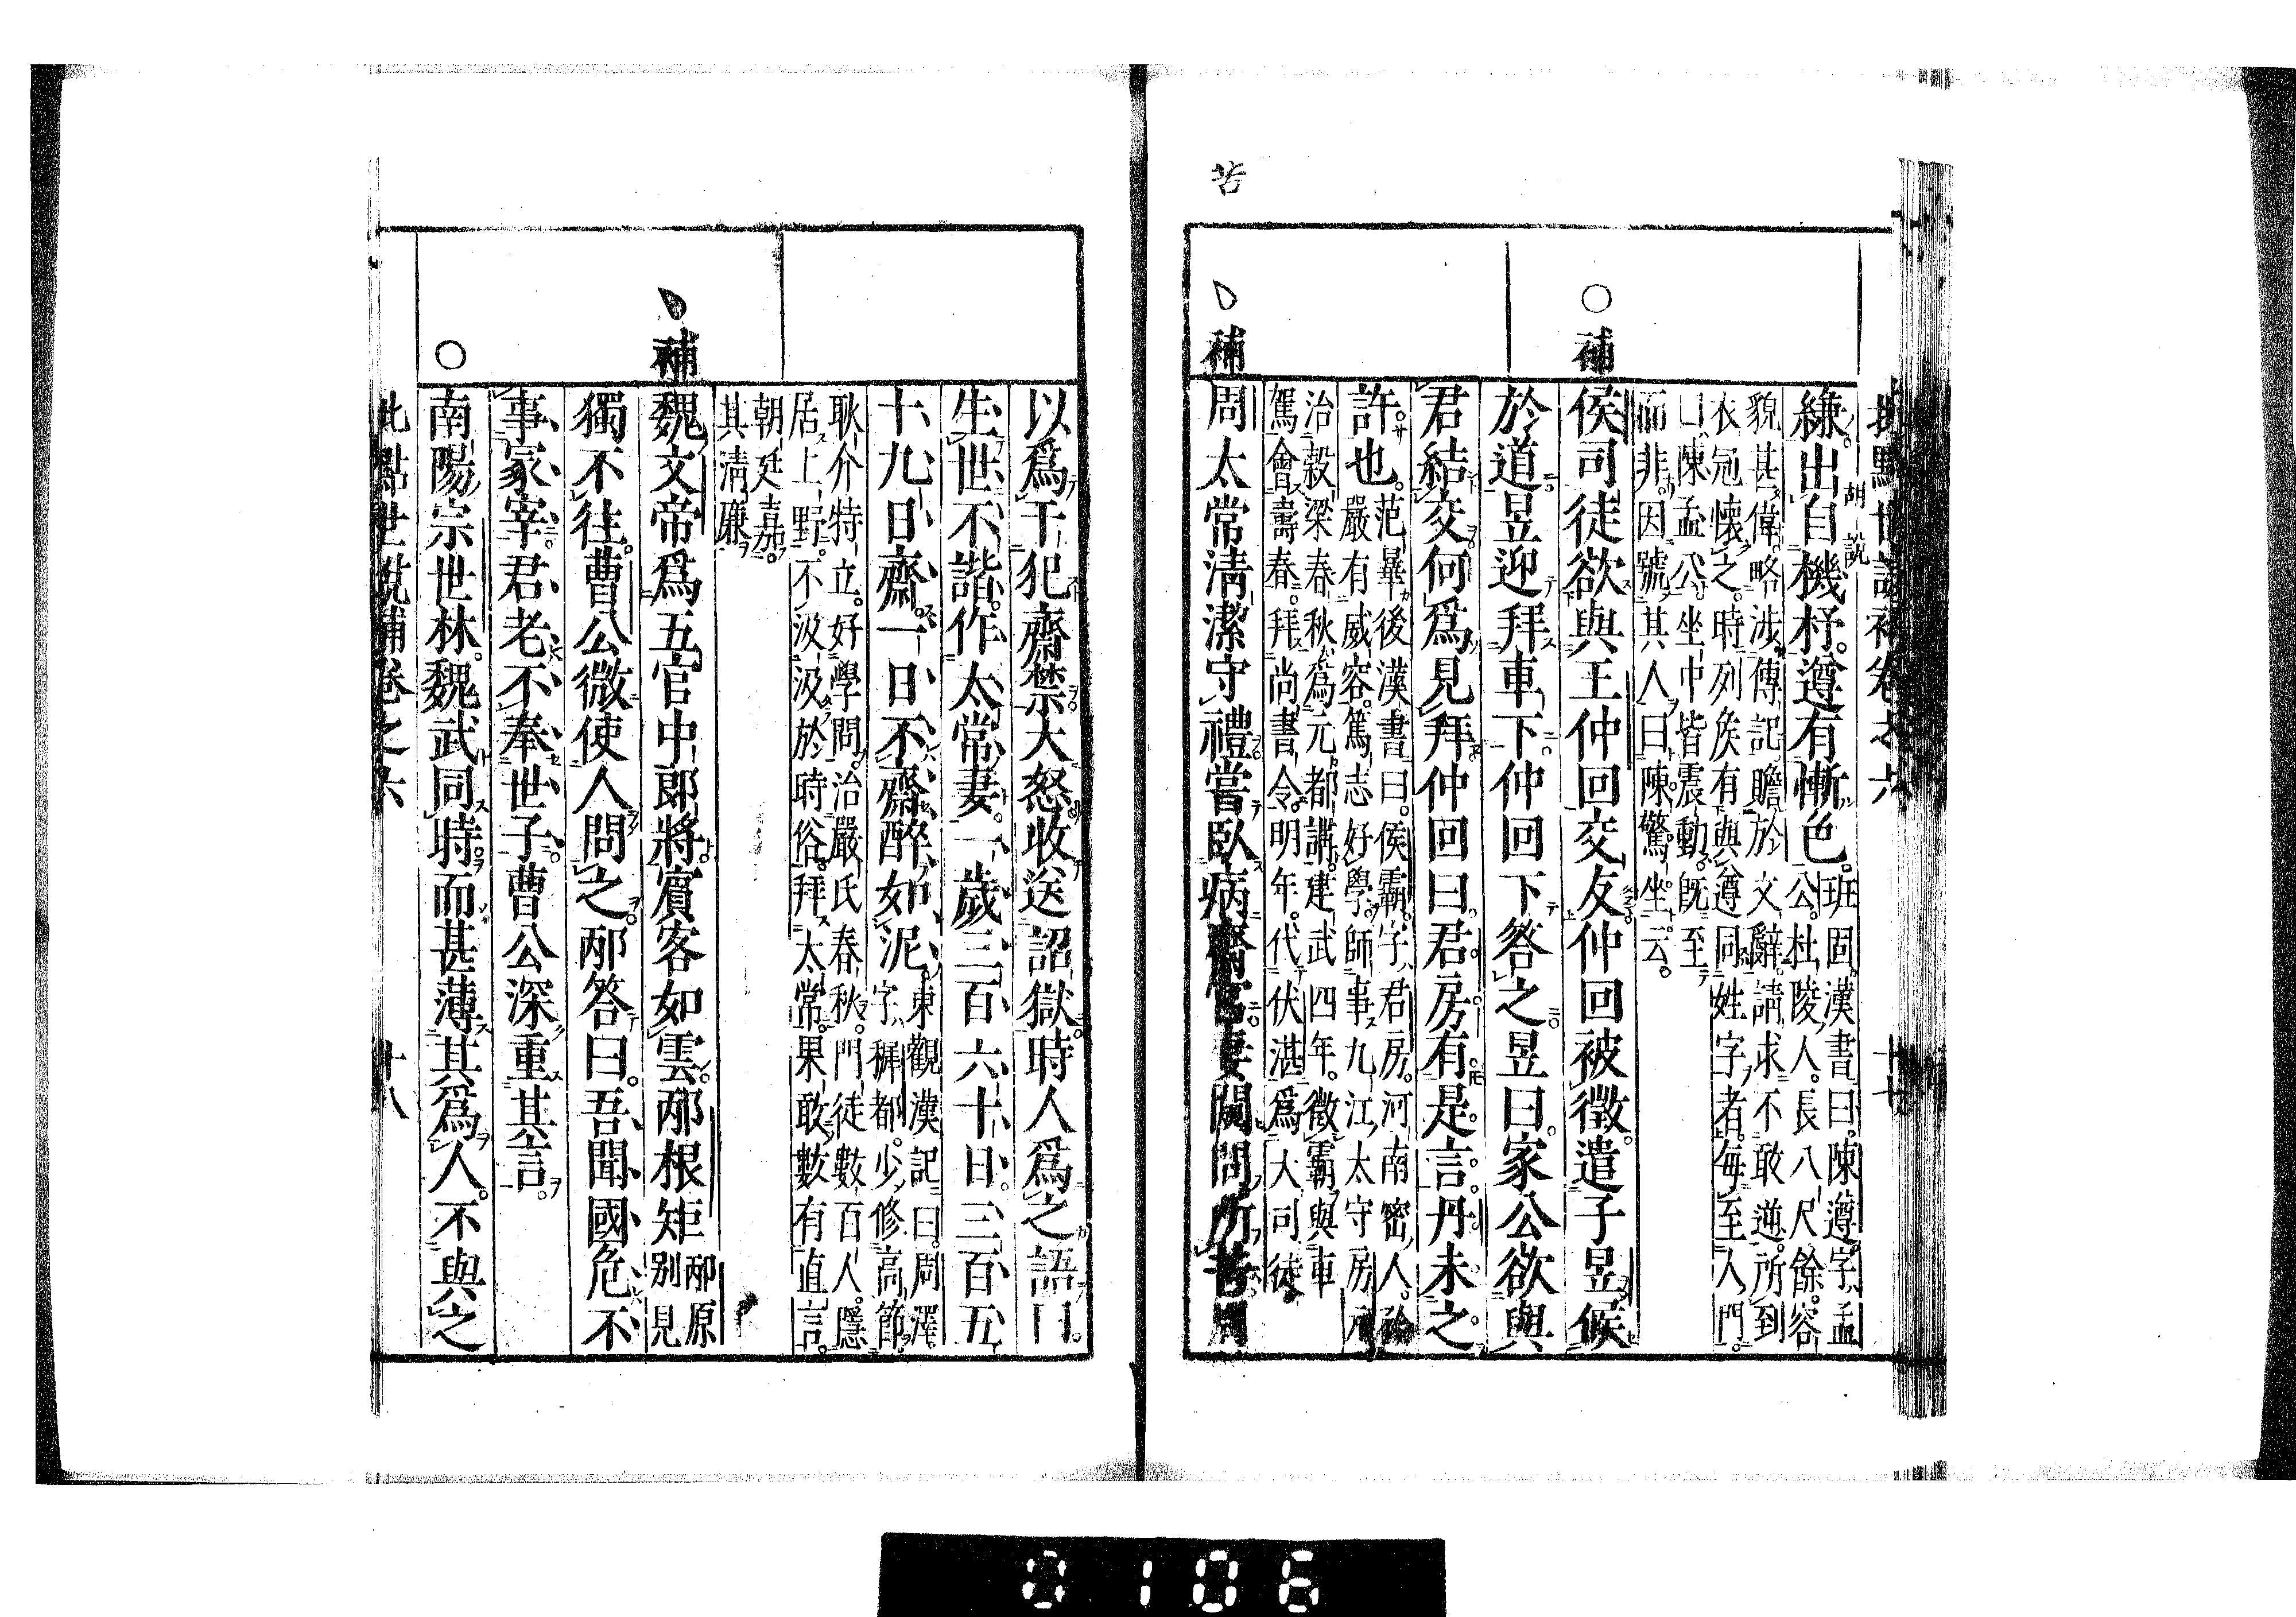 批點世說補卷之六 十七
縑出自機杼遵有慚色班固漢書曰陳遵字孟
公杜陵人長八尺餘容
貌甚偉略涉傳記贍於文辭請求不敢逆所到
衣冠懷之時列侯有與遵同姓字者每至人門
曰陳孟公坐中皆震動旣至
而非因號其人曰陳驚坐云
胡說
補
侯司徒欲與王仲回交友仲回被徵遣子昱候
於道昱迎拜車下仲回下答之昱曰家公欲與
君結交何爲見拜仲回曰君房有是言丹未之
許也范曄後漢書曰侯霸字君房河南密人矜
嚴有威容篤志好學師事九江太守房元
治穀梁春秋爲元都講建武四年徵霸與車
駕會壽春拜尚書令明年代伏湛爲大司徒
苦
補
周太常清潔守禮嘗臥病齋宮妻闚問所苦周
以爲干犯齋禁大怒收送詔獄時人爲之語曰
生世不諧作太常妻一歲三百六十日三百五
十九日齋一日不齋醉如泥東觀漢記曰周澤
字穉都少修高節
耿介特立好學問治嚴氏春秋門徒數百人隱
居上野不汲汲於時俗拜太常果敢數有直言
朝廷嘉
其清廉
補
魏文帝爲五官中郎將賓客如雲邴根矩邴原
別見
獨不往曹公微使人問之邴答曰吾聞國危不
事冢宰君老不奉世子曹公深重其言
南陽宗世林魏武同時而甚薄其爲人不與之
批點世說補卷之六 十八
0106